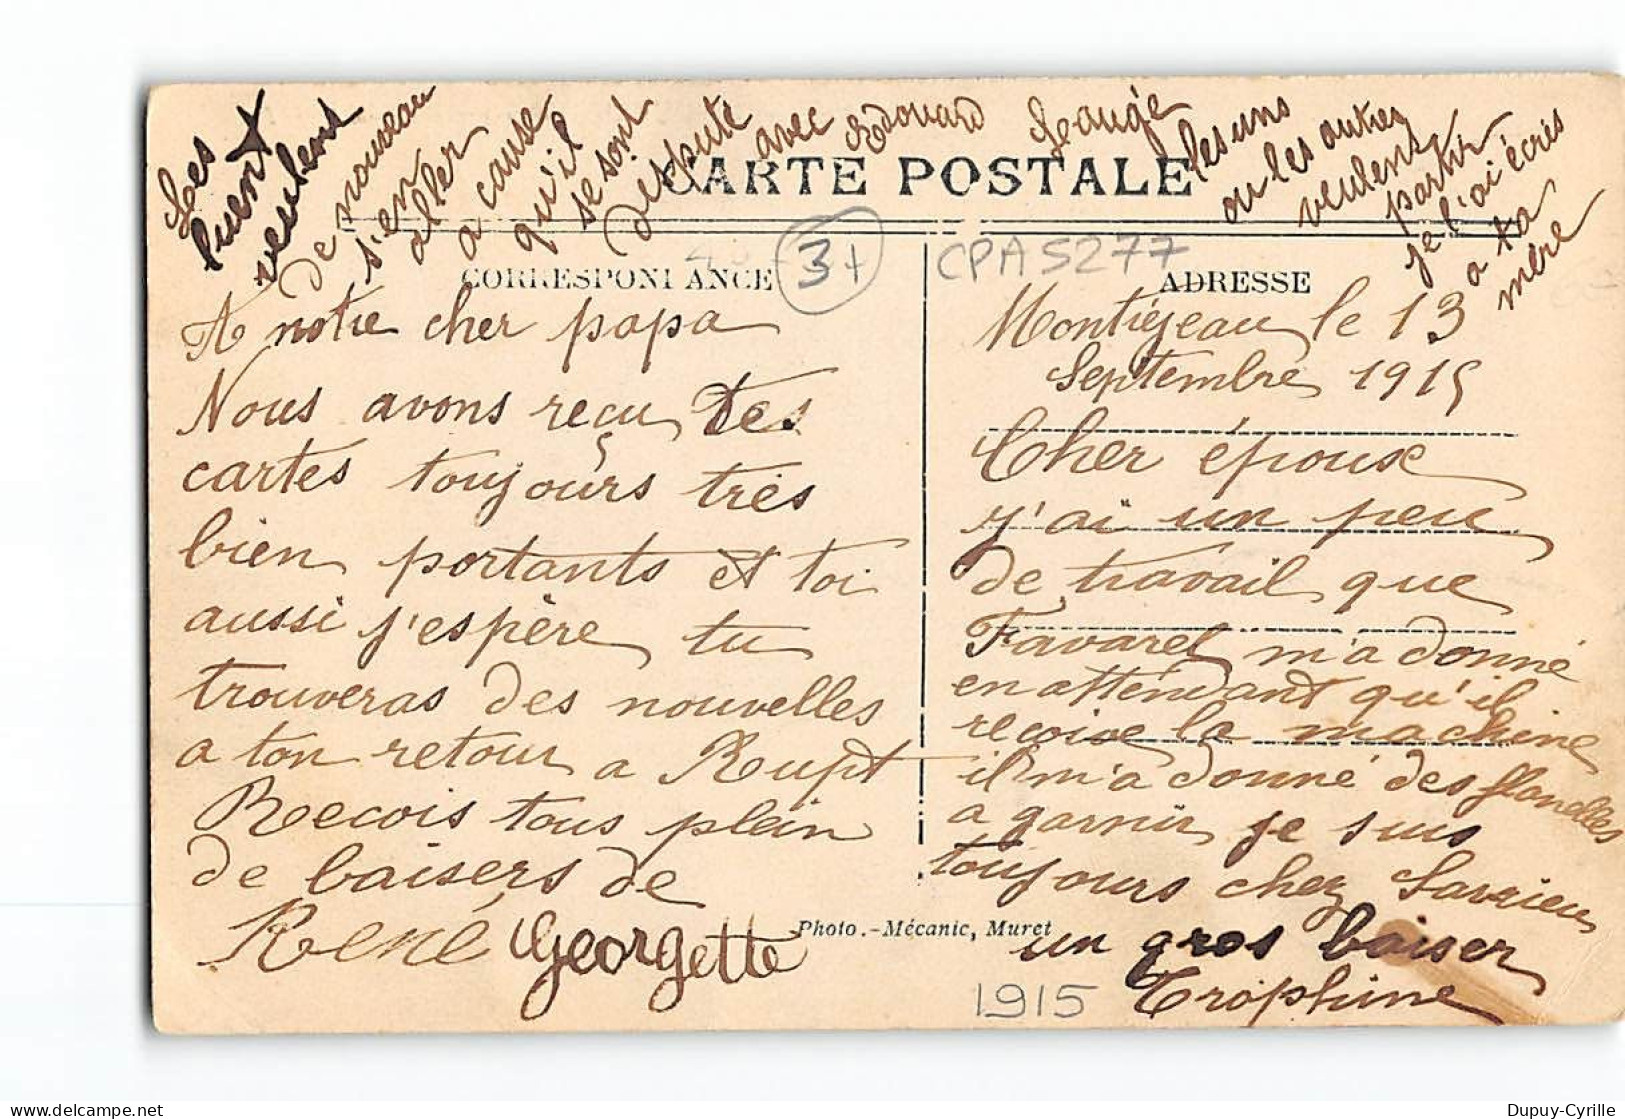 Les
veulent
de nouveau
s'en
aller
a cause
qu'il
se sont
dispute
avec
Edouard
Laugé
les uns
ou les autres
veulent
partir
je l'ai écris
a ta
mère
CARTE POSTALE
3+
CPA5277
CORRESPONDANCE
ADRESSE
A notre cher papa
Nous avons reçu tes
cartes toujours très
bien portants et toi
aussi j'espère tu
trouveras des nouvelles
a ton retour a Rupt
Recois tous plein
de baisers de
René Georgette
Montiejeau le 13
Septembre 1915
Cher épouse
j'ai un peu
de travail que
Favarel m'a donné
en attendant qu'il
reçoive la machine
il m'a donné des flanelles
a garnir je suis
toujours chez Savrieu
un gros baiser
Trophime
Photo.-Mécanic, Muret
1915
Dupuy-Cyrille